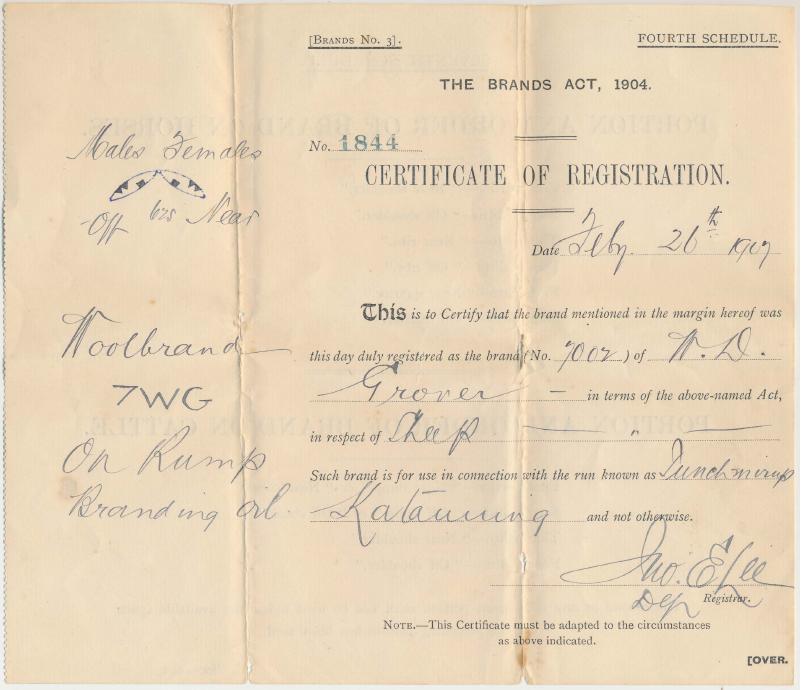 [BRANDS NO. 3].
FOURTH SCHEDULE.
THE BRANDS ACT, 1904.
No. 1844
CERTIFICATE OF REGISTRATION.
Date Feby. 26th 1907
Males Females
Off Near
Woolbrand
7WG
On Rump
Branding Oil.
This is to Certify that the brand mentioned in the margin hereof was
this day duly registered as the brand (No. 7002) of W. D.
Grover — in terms of the above-named Act,
in respect of Sheep — " —
Such brand is for use in connection with the run known as
Katanning and not otherwise.
Jno. E Lee
Dep Registrar.
NOTE.—This Certificate must be adapted to the circumstances
as above indicated.
[OVER.